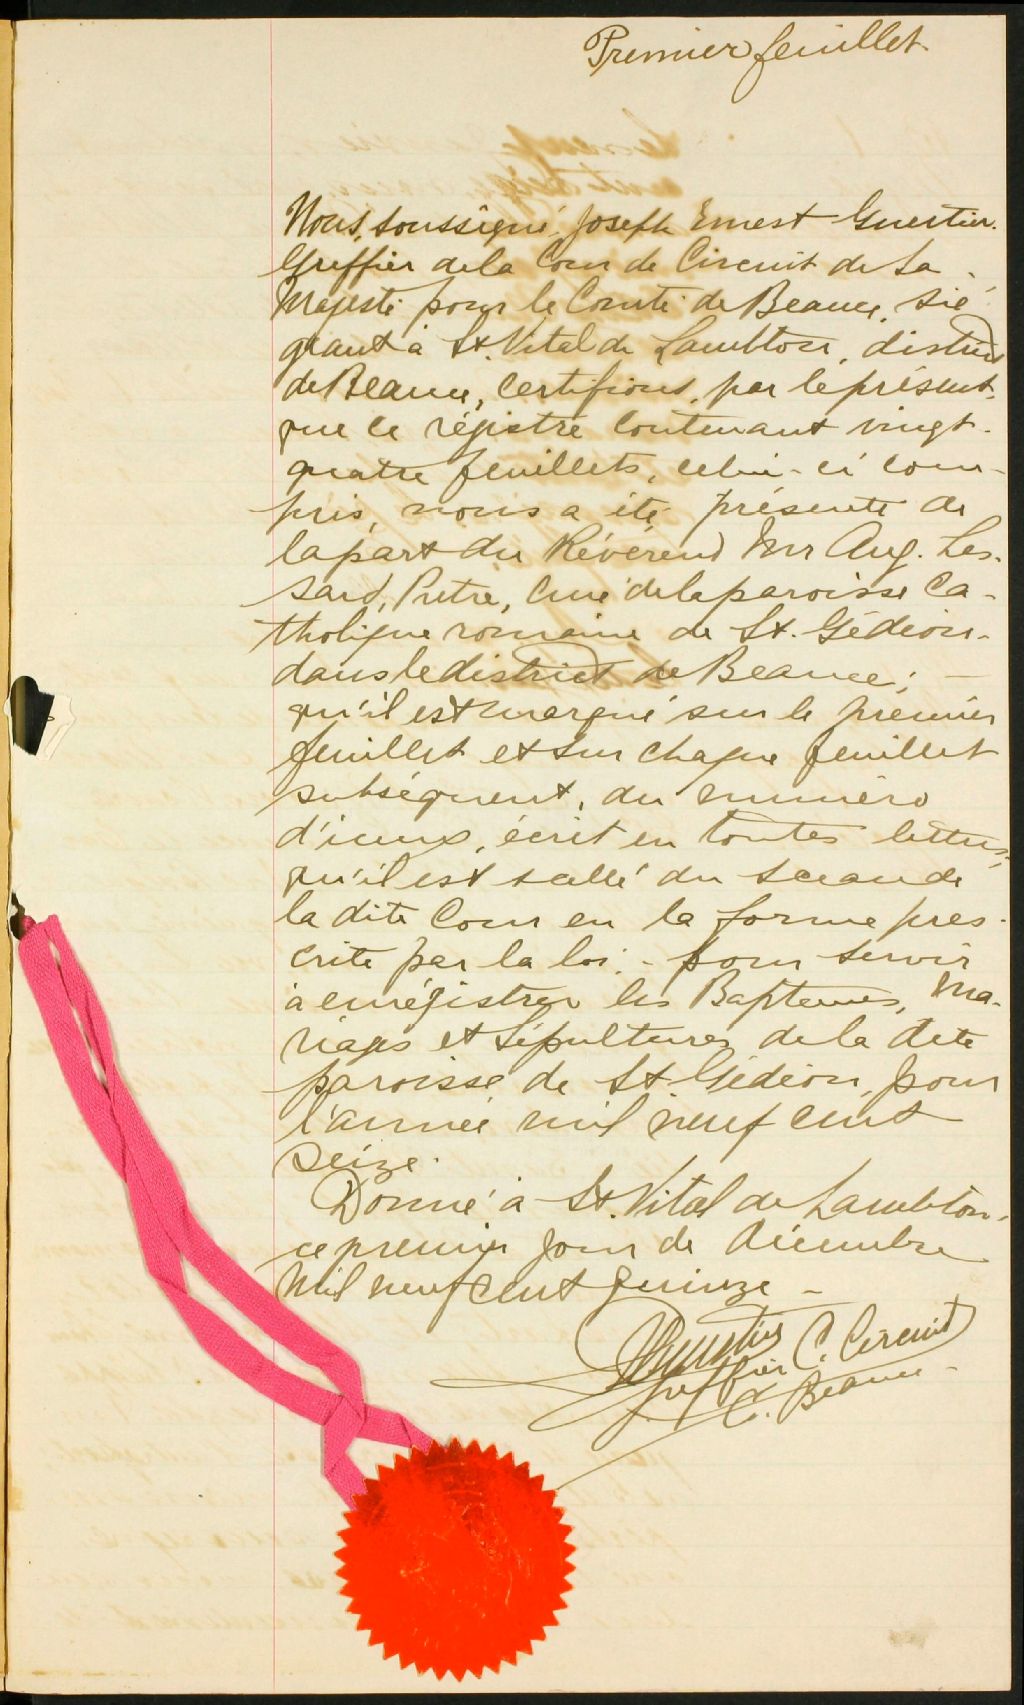 Premier feuillet.
Nous, soussigné, Joseph Ernest Guertin.
Greffier de la Cour de Circuit de Sa
Majesté pour le Comté de Beauce, sié
geant à St. Vital de Lambton, district
de Beauce, certifions, par le présent,
que ce régistre contenant vingt-
quatre feuillets, celui-ci com-
pris, nous a été présenté de
la part du Révérend Mr Aug. Les-
sard, Prêtre, Curé de la paroisse Ca-
tholique romaine de St. Gédéon-
dans le district de Beauce; -
qu'il est marqué sur le premier
feuillet et sur chaque feuillet
subséquent, du numéro
d'iceux, écrit en toutes lettres,
qu'il est scellé du sceau de
la dite Cour en la forme pres-
crite par la loi. - pour servir
à enrégistrer les Baptemes, Ma-
riages et Sépultures de la dite
paroisse de St Gédéon, pour
l'année mil neuf cent
seize.
Donné à St. Vital de Lambton.
ce premier jour de décembre
mil neuf cent quinze -
Guertin
Greffier C. Circuit
C. Beauce -